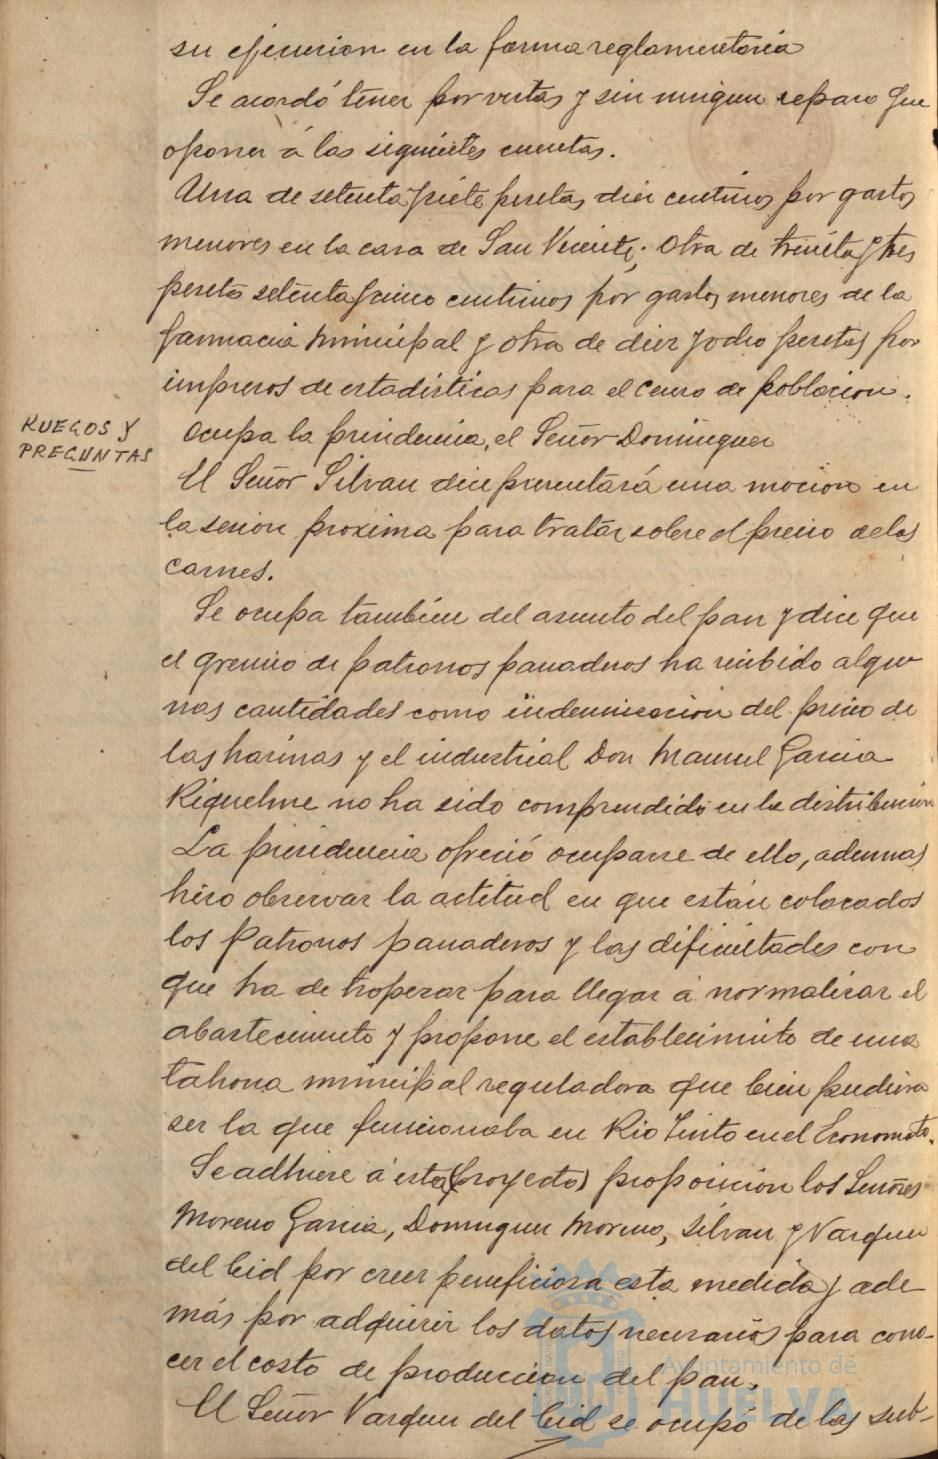 su ejecucion en la forma reglamentaria
Se acordó tener por vistas y sin ningun reparo que
oponer á las siguientes cuentas.
Una de setenta y siete pesetas diez centimos por gastos
menores en la casa de San Vicente; Otra de treinta y tres
pesetas setenta y cinco centimos por gastos menores de la
farmacia municipal y otra de diez y ocho pesetas por
impresos de estadisticas para el censo de poblacion.
RUEGOS Y
PREGUNTAS
Ocupa la presidencia, el Señor Dominguez
El Señor Silvan dice presentará una mocion en
la sesion proxima para tratar sobre el precio de las
carnes.
Se ocupa tambien del asunto del pan y dice que
el gremio de patronos panaderos ha recibido algu
nas cantidades como indemnizacion del precio de
las harinas y el industrial Don Manuel Garcia
Riquelme no ha sido comprendido en la distribucion
La presidencia ofreció ocuparse de ello, ademas
hizo observar la actitud en que están colocados
los Patronos panaderos y las dificultades con
que ha de tropezar para llegar á normalizar el
abastecimiento y propone el establecimiento de una
tahona municipal reguladora que bien pudiera
ser la que funcionaba en Rio Tinto en el Economato.
Se adhiere á esta (proyecto) proposicion los Señores
Moreno Garcia, Dominguez Moreno, Silvan y Vazquez
del Cid por creer beneficiosa esta medida y ade
más por adquirir los datos necesarios para cono-
cer el costo de produccion del pan.
El Señor Vazquez del Cid se ocupó de las sub-
Ayuntamiento de
HUELVA